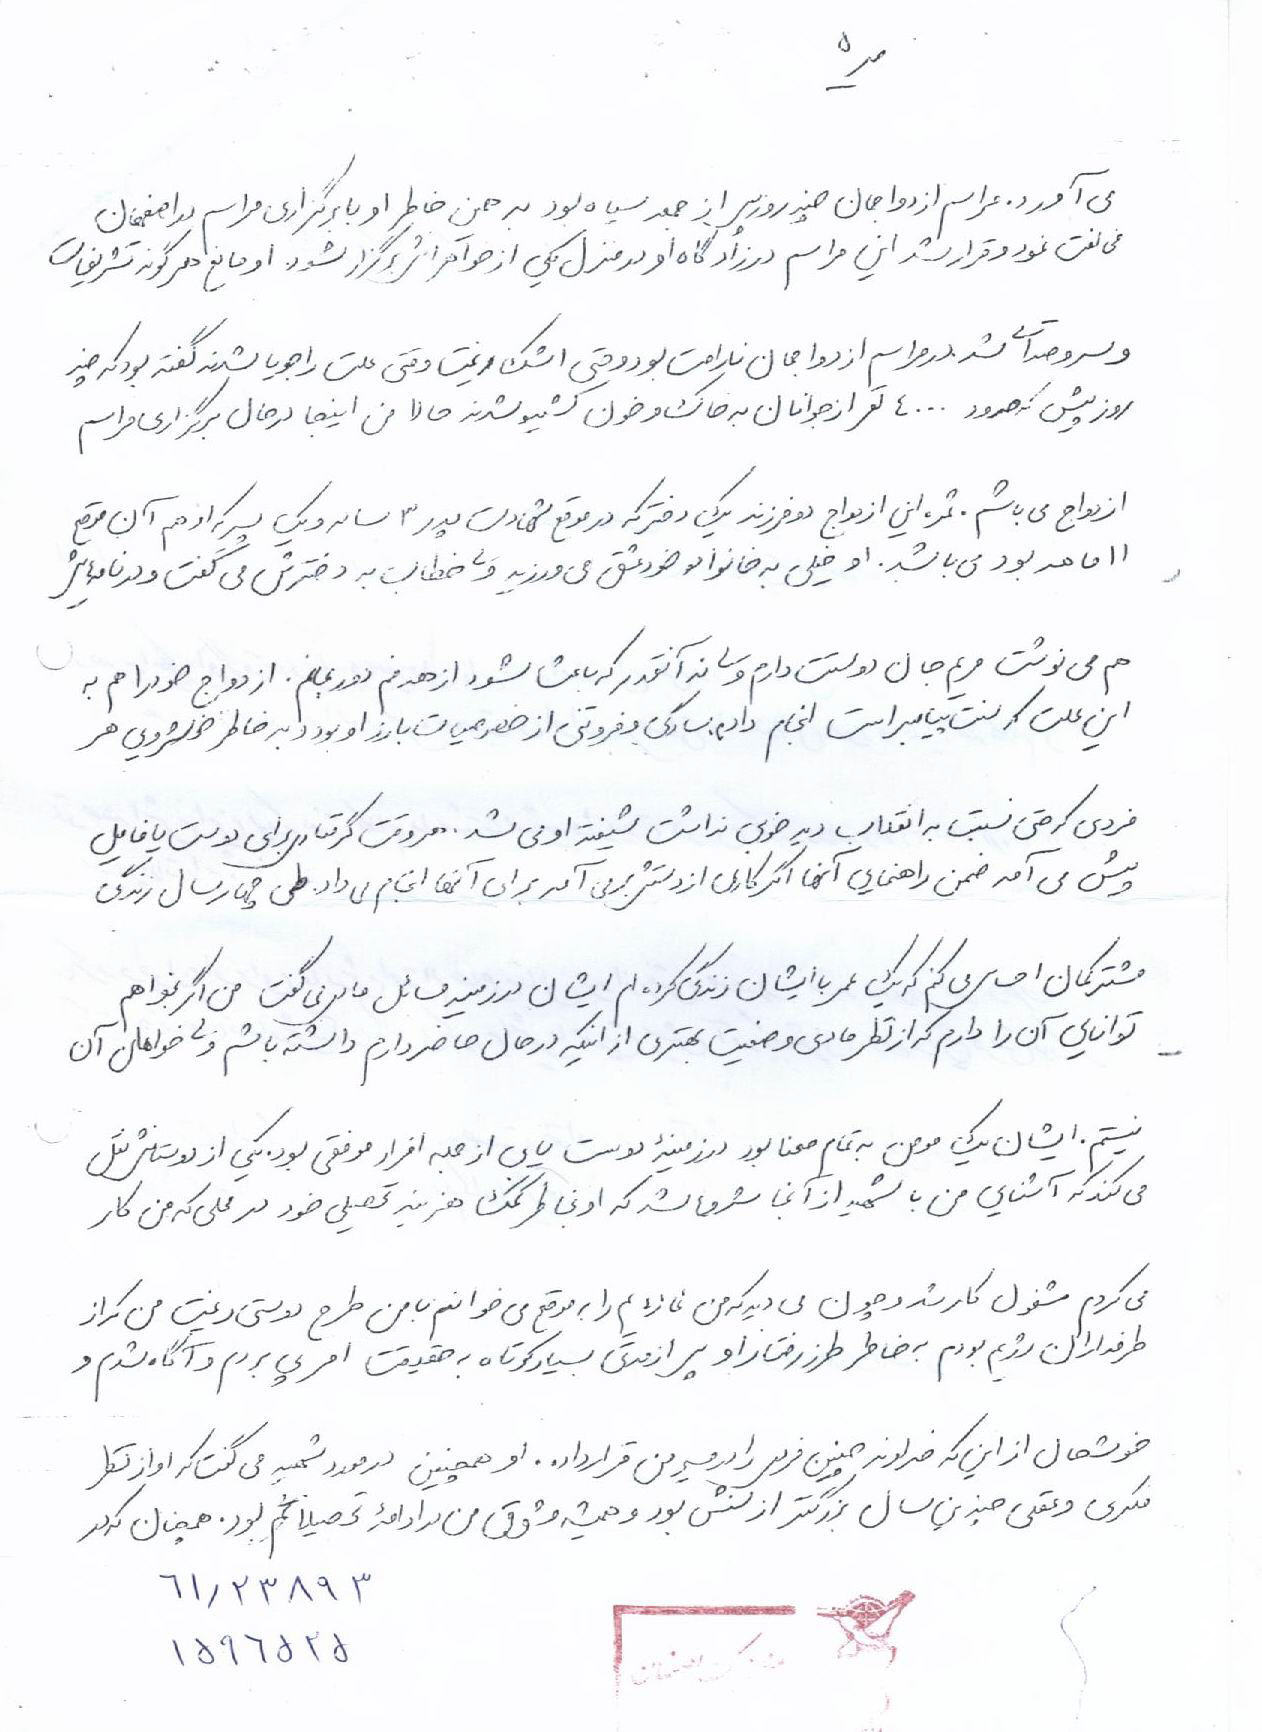 ص ۵
می آورد. مراسم ازدواجمان چند روز پس از جمعه سیاه بود به همین خاطر او با برگزاری مراسم در اصفهان
مخالفت نمود و قرار شد این مراسم در زادگاه او در منزل یکی از خواهرانش برگزار شود. او مانع هرگونه تشریفات
و سروصدائی شد. در مراسم ازدواجمان ناراحت بود وقتی اشک ریخت وقتی علت را جویا شدند گفته بود که چند
روز پیش که حدود ۴۰۰۰ نفر از جوانان به خاک و خون کشیده شدند حالا من اینجا در حال برگزاری مراسم
ازدواج می باشم. ثمره این ازدواج دو فرزند یکی دختر که در موقع شهادت پدر ۳ ساله و یک پسر که او هم آن موقع
۱۱ ماهه بود می باشد. او خیلی به خانواده خود عشق می ورزید ولی خطاب به دخترش می گفت و در نامه هایش
هم می نوشت مریم جان دوستت دارم ولی نه آنقدر که باعث شود از هدفم دور بمانم. ازدواج خود را هم به
این علت که سنت پیامبر است انجام داده. سادگی و فروتنی از خصوصیات بارز او بود و به خاطر خوشرویی هر
فردی که حتی نسبت به انقلاب دید خوبی نداشت شیفته او می شد. هر وقت گرفتاری برای دوست یا فامیل
پیش می آمد ضمن راهنمایی آنها اگر کاری از دستش برمی آمد برای آنها انجام می داد. طی چهار سال زندگی
مشترکمان احساس می کنم که یک عمر با ایشان زندگی کرده ام ایشان در زمینه مسائل مادی می گفت من اگر بخواهم
توانایی آن را دارم که از نظر مادی وضعیت بهتری از اینکه در حال حاضر دارم داشته باشم ولی خواهان آن
نیستم. ایشان یک مومن به تمام معنا بود در زمینهٔ دوست یابی از جمله افراد موفقی بود. یکی از دوستانش نقل
می کند که آشنایی من با شهید از آنجا شروع شد که او بخاطر کمک هزینه تحصیلی خود در محلی که من کار
می کردم مشغول کار شد و چون می دید که من نمازهایم را به موقع می خوانم با من طرح دوستی ریخت من که از
طرفداران رژیم بودم به خاطر طرز رفتار او پس از مدتی بسیار کوتاه به حقیقت امر پی بردم و آگاه شدم و
خوشحال از این که خداوند چنین فردی را در مسیر من قرار داده. او همچنین در مورد شهید می گفت که او از نظر
فکری و عقلی چندین سال بزرگتر از سنش بود و همیشه مشوق من در ادامهٔ تحصیلاتم بود. همچنان که در
۶۱/۲۳۸۹۳
۱۵۹۶۵۲۵